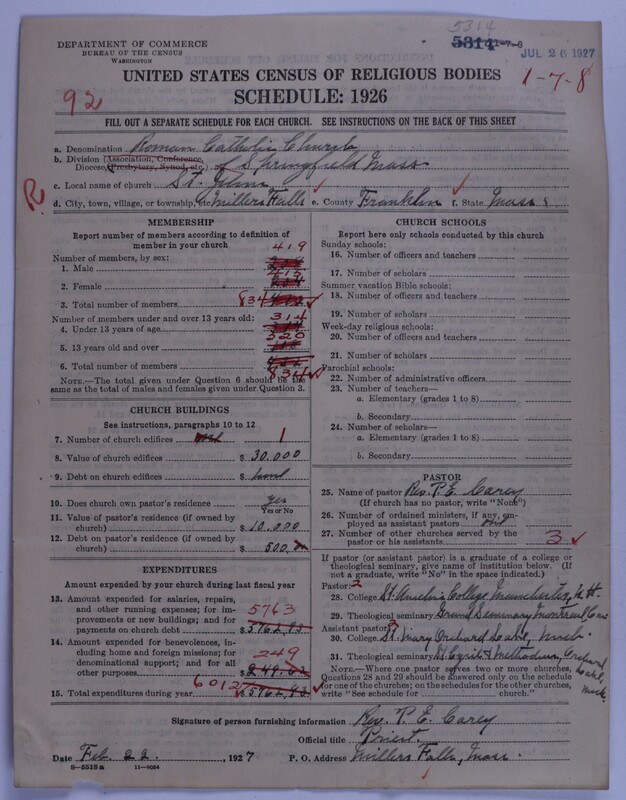 5314
DEPARTMENT OF COMMERCE
BUREAU OF THE CENSUS
WASHINGTON
5314 1-7-8
JUL 26 1927
UNITED STATES CENSUS OF RELIGIOUS BODIES
1-7-8
92
SCHEDULE: 1926
FILL OUT A SEPARATE SCHEDULE FOR EACH CHURCH. SEE INSTRUCTIONS ON THE BACK OF THIS SHEET
a. Denomination Roman Catholic Church
b. Division (Association, Conference, Diocese, Presbytery, Synod, etc.) of Springfield Mass
R
c. Local name of church St.
d. City, town, village, or township, etc. Millers Falls e. County Franklin f. State Mass
MEMBERSHIP
Report number of members according to definition of
member in your church
Number of members, by sex: 419
1. Male
2. Female 415
3. Total number of members 834
Number of members under and over 13 years old: 314
4. Under 13 years of age
5. 13 years old and over 520
6. Total number of members 834
NOTE.—The total given under Question 6 should be the
same as the total of males and females given under Question 3.
CHURCH BUILDINGS
See instructions, paragraphs 10 to 12
7. Number of church edifices 1
8. Value of church edifices $ 30.000
9. Debt on church edifices $ none
10. Does church own pastor's residence yes
Yes or No
11. Value of pastor's residence (if owned by
church) $ 10.000
12. Debt on pastor's residence (if owned by
church) $ 500.00
EXPENDITURES
Amount expended by your church during last fiscal year
13. Amount expended for salaries, repairs,
and other running expenses; for im-
provements or new buildings; and for
payments on church debt 5763 $ 5762.93
14. Amount expended for benevolences, in-
cluding home and foreign missions; for
denominational support; and for all
other purposes 249 $ 249.62
15. Total expenditures during year 6012 $
CHURCH SCHOOLS
Report here only schools conducted by this church
Sunday schools:
16. Number of officers and teachers
17. Number of scholars
Summer vacation Bible schools:
18. Number of officers and teachers
19. Number of scholars
Week-day religious schools:
20. Number of officers and teachers
21. Number of scholars
Parochial schools:
22. Number of administrative officers
23. Number of teachers—
a. Elementary (grades 1 to 8)
b. Secondary
24. Number of scholars—
a. Elementary (grades 1 to 8)
b. Secondary
PASTOR
25. Name of pastor Rev. P. E. Carey
(If church has no pastor, write "None")
26. Number of ordained ministers, if any, em-
ployed as assistant pastors one
27. Number of other churches served by the
pastor or his assistants 3
If pastor (or assistant pastor) is a graduate of a college or
theological seminary, give name of institution below. (If
not a graduate, write "No" in the space indicated.)
Pastor: 2
28. College St. Anselm's College Manchester, N.H.
29. Theological seminary Grand Seminary Montreal Can
Assistant pastor:
30. College St. Mary Orchard Lake, Mich.
31. Theological seminary St Cyril & Methodius, Orchard Lake, Mich.
NOTE.—Where one pastor serves two or more churches,
Questions 28 and 29 should be answered only on the schedule
for one of the churches; on the schedules for the other churches,
write "See schedule for church."
Signature of person furnishing information Rev. P. E. Carey
Official title Priest.
Date Feb. 22, 1927 P. O. Address Millers Falls, Mass.
8-5518a 11-9024